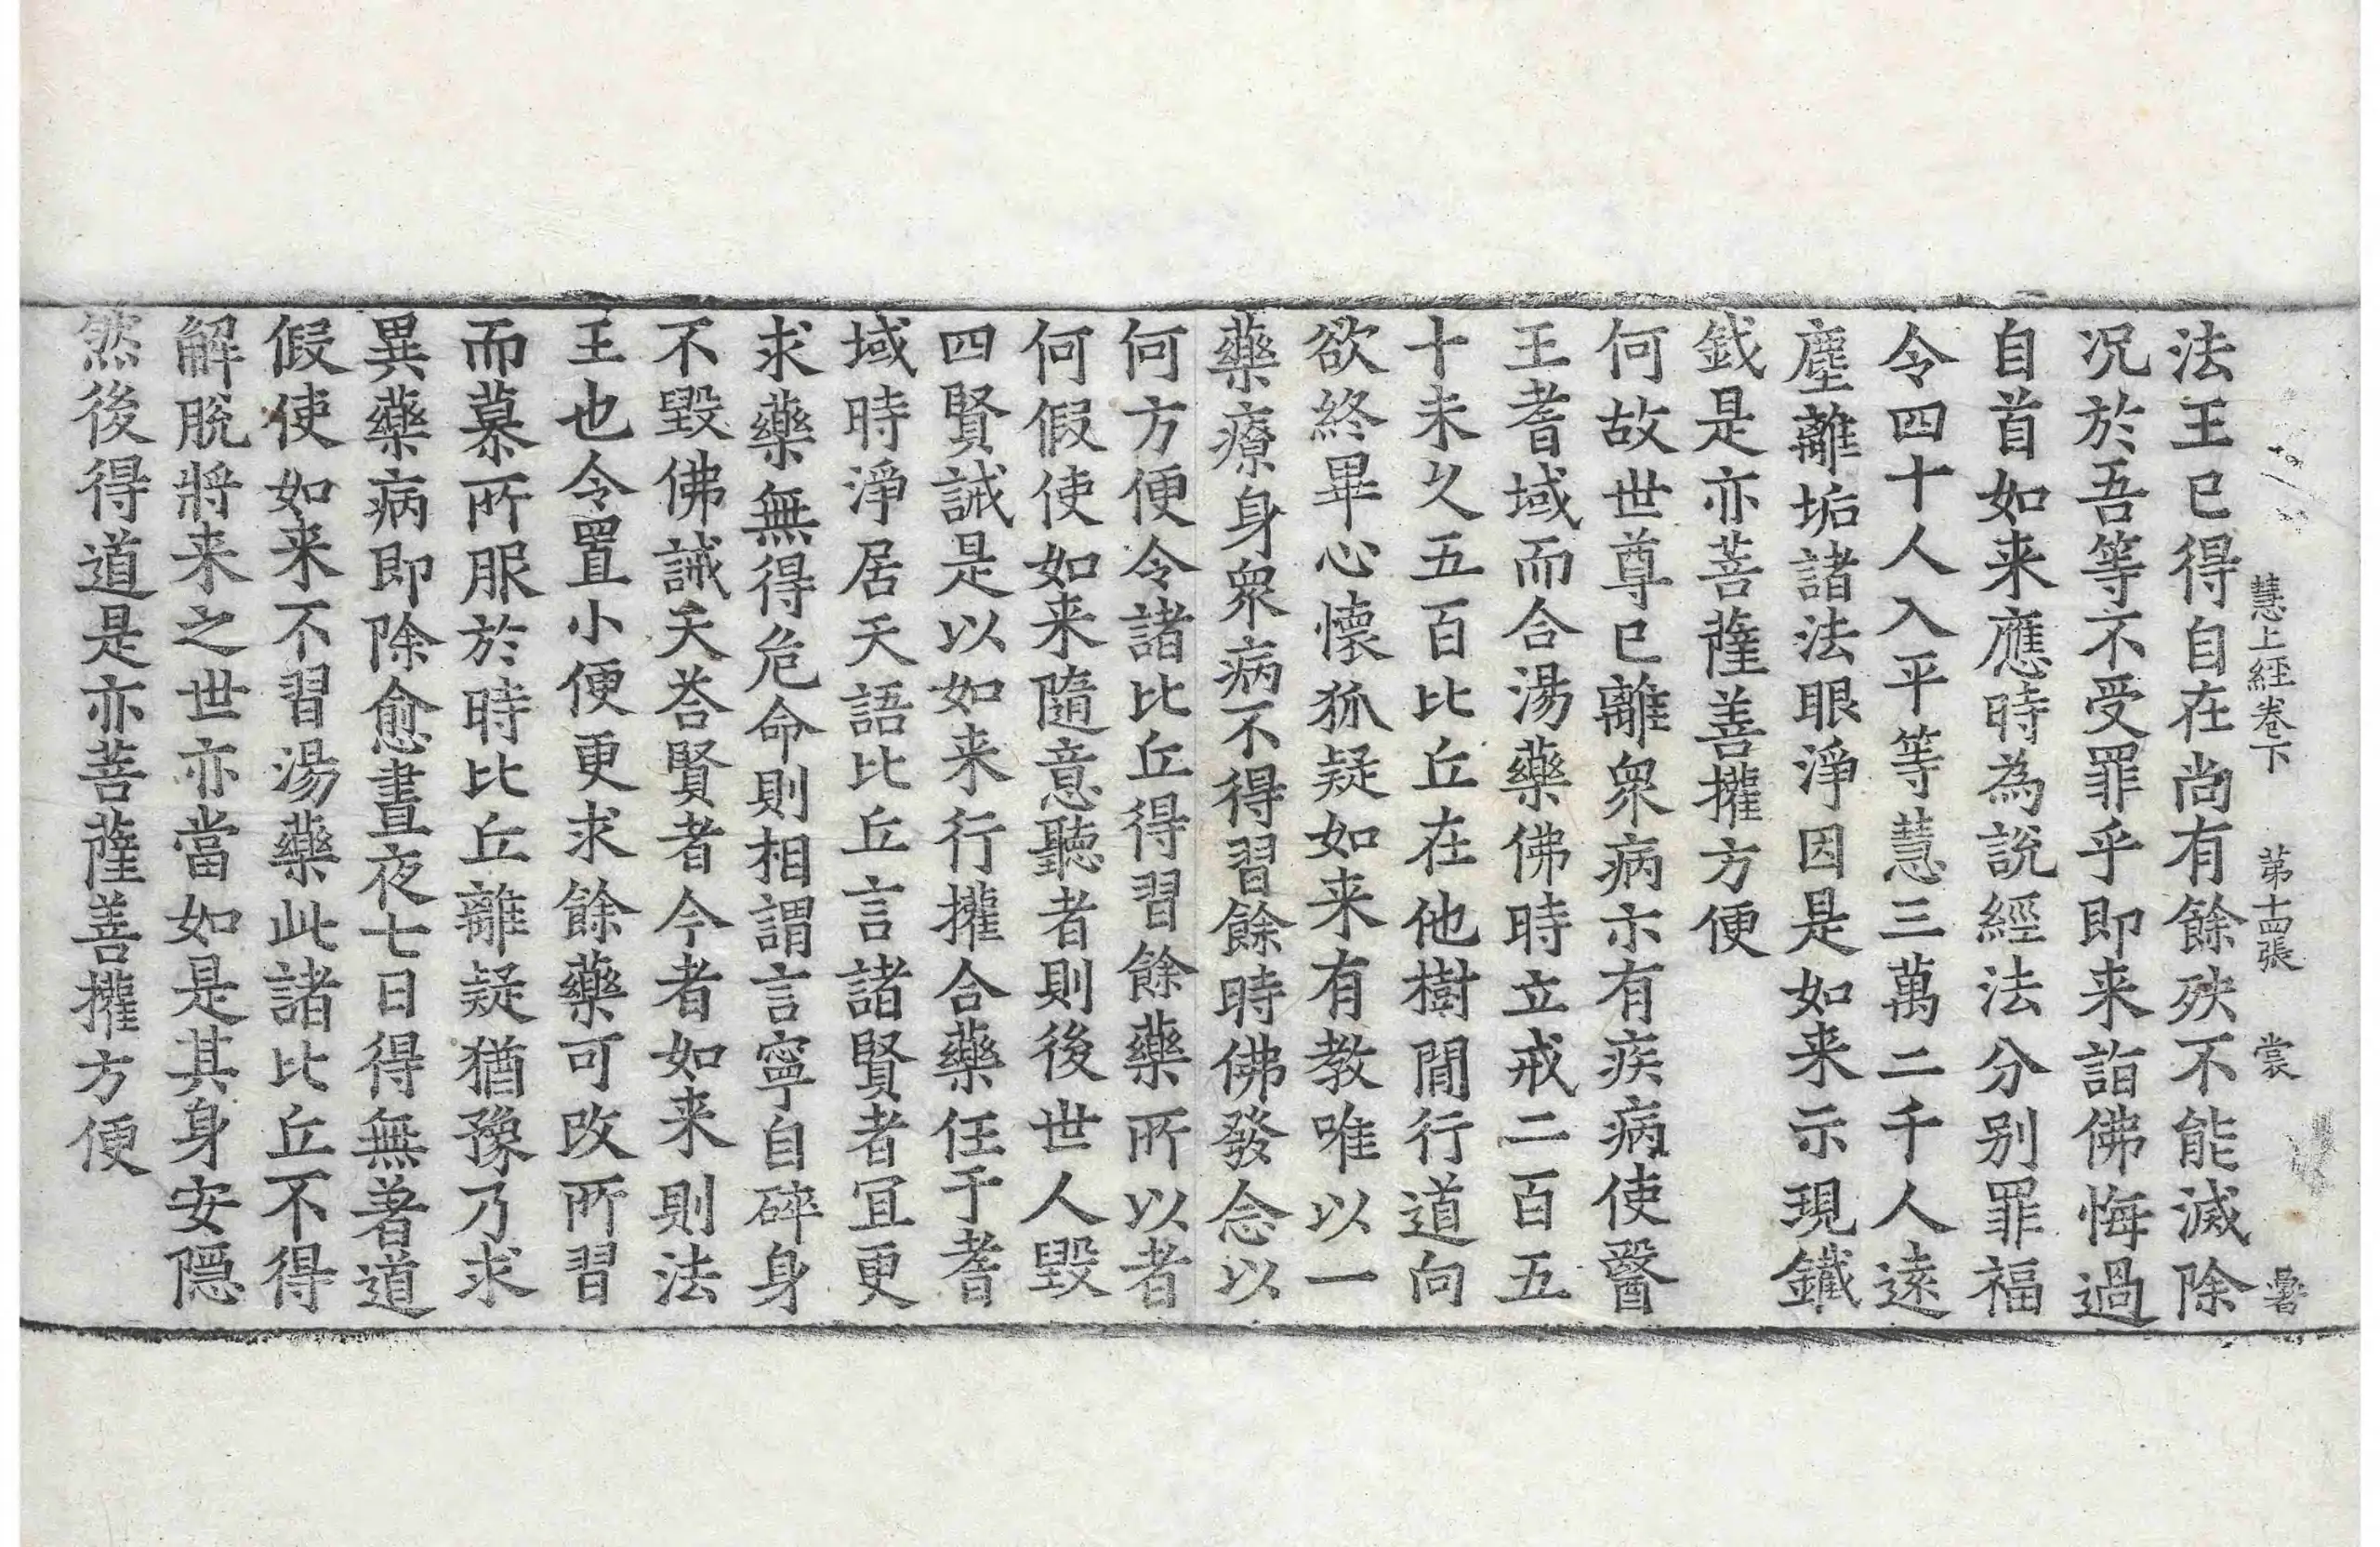 慧上經卷下　第十四張　裳
法王已得自在尚有餘殃不能滅除
况於吾等不受罪乎即来詣佛悔過
自首如来應時為說經法分别罪福
令四十人入平等慧三萬二千人逺
塵離垢諸法眼淨因是如来示現鐵
釴是亦菩薩善攉方便
何故世尊已離衆病示有疾病使醫
王耆域而合湯藥佛時立戒二百五
十未乆五百比丘在他樹閒行道向
欲終畢心懷狐疑如来有教唯以一
藥療身衆病不得習餘時佛發念以
何方便令諸比丘得習餘藥所以者
何假使如来隨意聽者則後世人毀
四賢誡是以如来行攉合藥任于耆
域時淨居天語比丘言諸賢者冝更
求藥無得危命則相謂言寧自碎身
不毀佛誡天荅賢者今者如来則法
王也令置小便更求餘藥可改所習
而慕所服於時比丘離疑猶豫乃求
異藥病即除愈晝夜七日得無著道
假使如来不習湯藥此諸比丘不得
解脫將来之世亦當如是其身安隱
然後得道是亦菩薩善攉方便